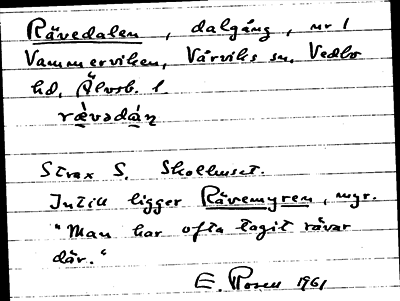 Rävedalen, dalgång, nr 1
Vammerviken, Värviks sn, Vedbo
hd, Älvsb. l.
rä̀vədàɳ
Strax S. Skolhuset.
Intill ligger Rävemyren, myr.
"Man har ofta tagit rävar
där."
E. Rosen 1961